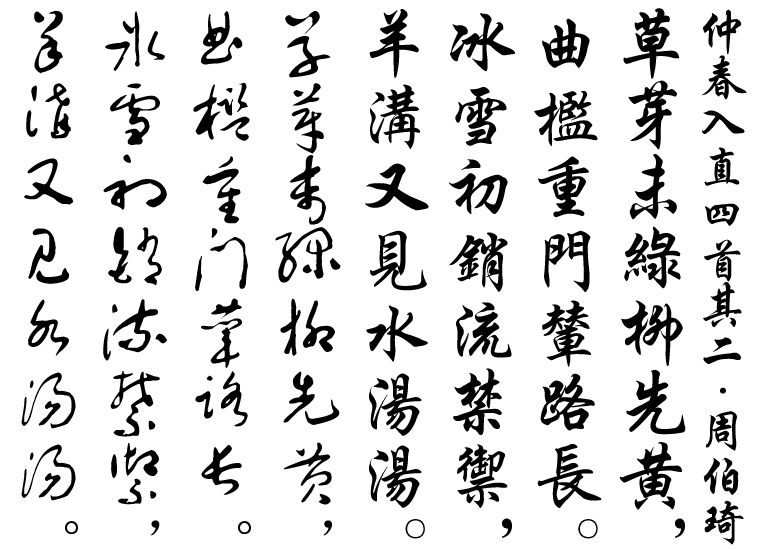 仲春入直四首其二·周伯琦
草芽未綠柳先黃，
曲檻重門輦路長。
冰雪初銷流禁禦，
羊溝又見水湯湯。
草芽未綠柳先黃，
曲檻重門輦路長。
冰雪初銷流禁禦，
羊溝又見水湯湯。